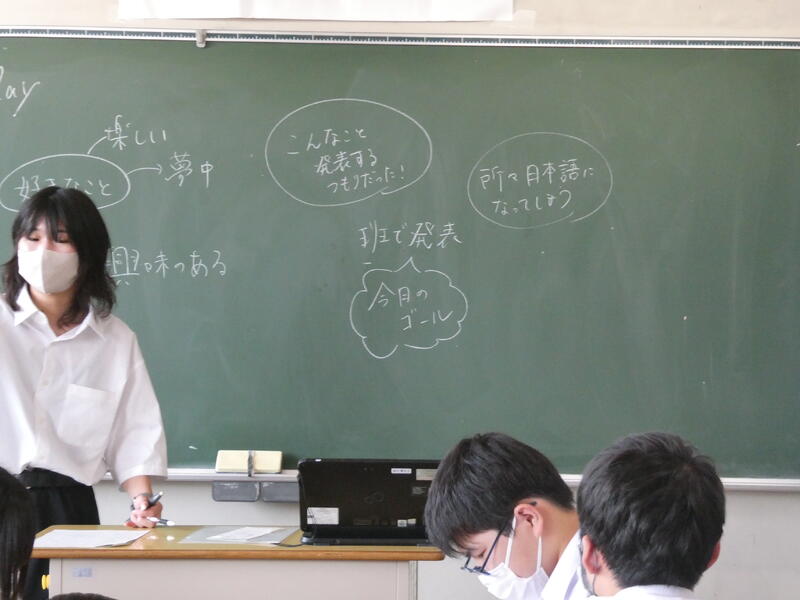 楽しい
好きなこと
夢中
興味のある
こんなこと
発表する
つもりだった!
所々日本語に
なってしまう
班で発表
今日の
ゴール